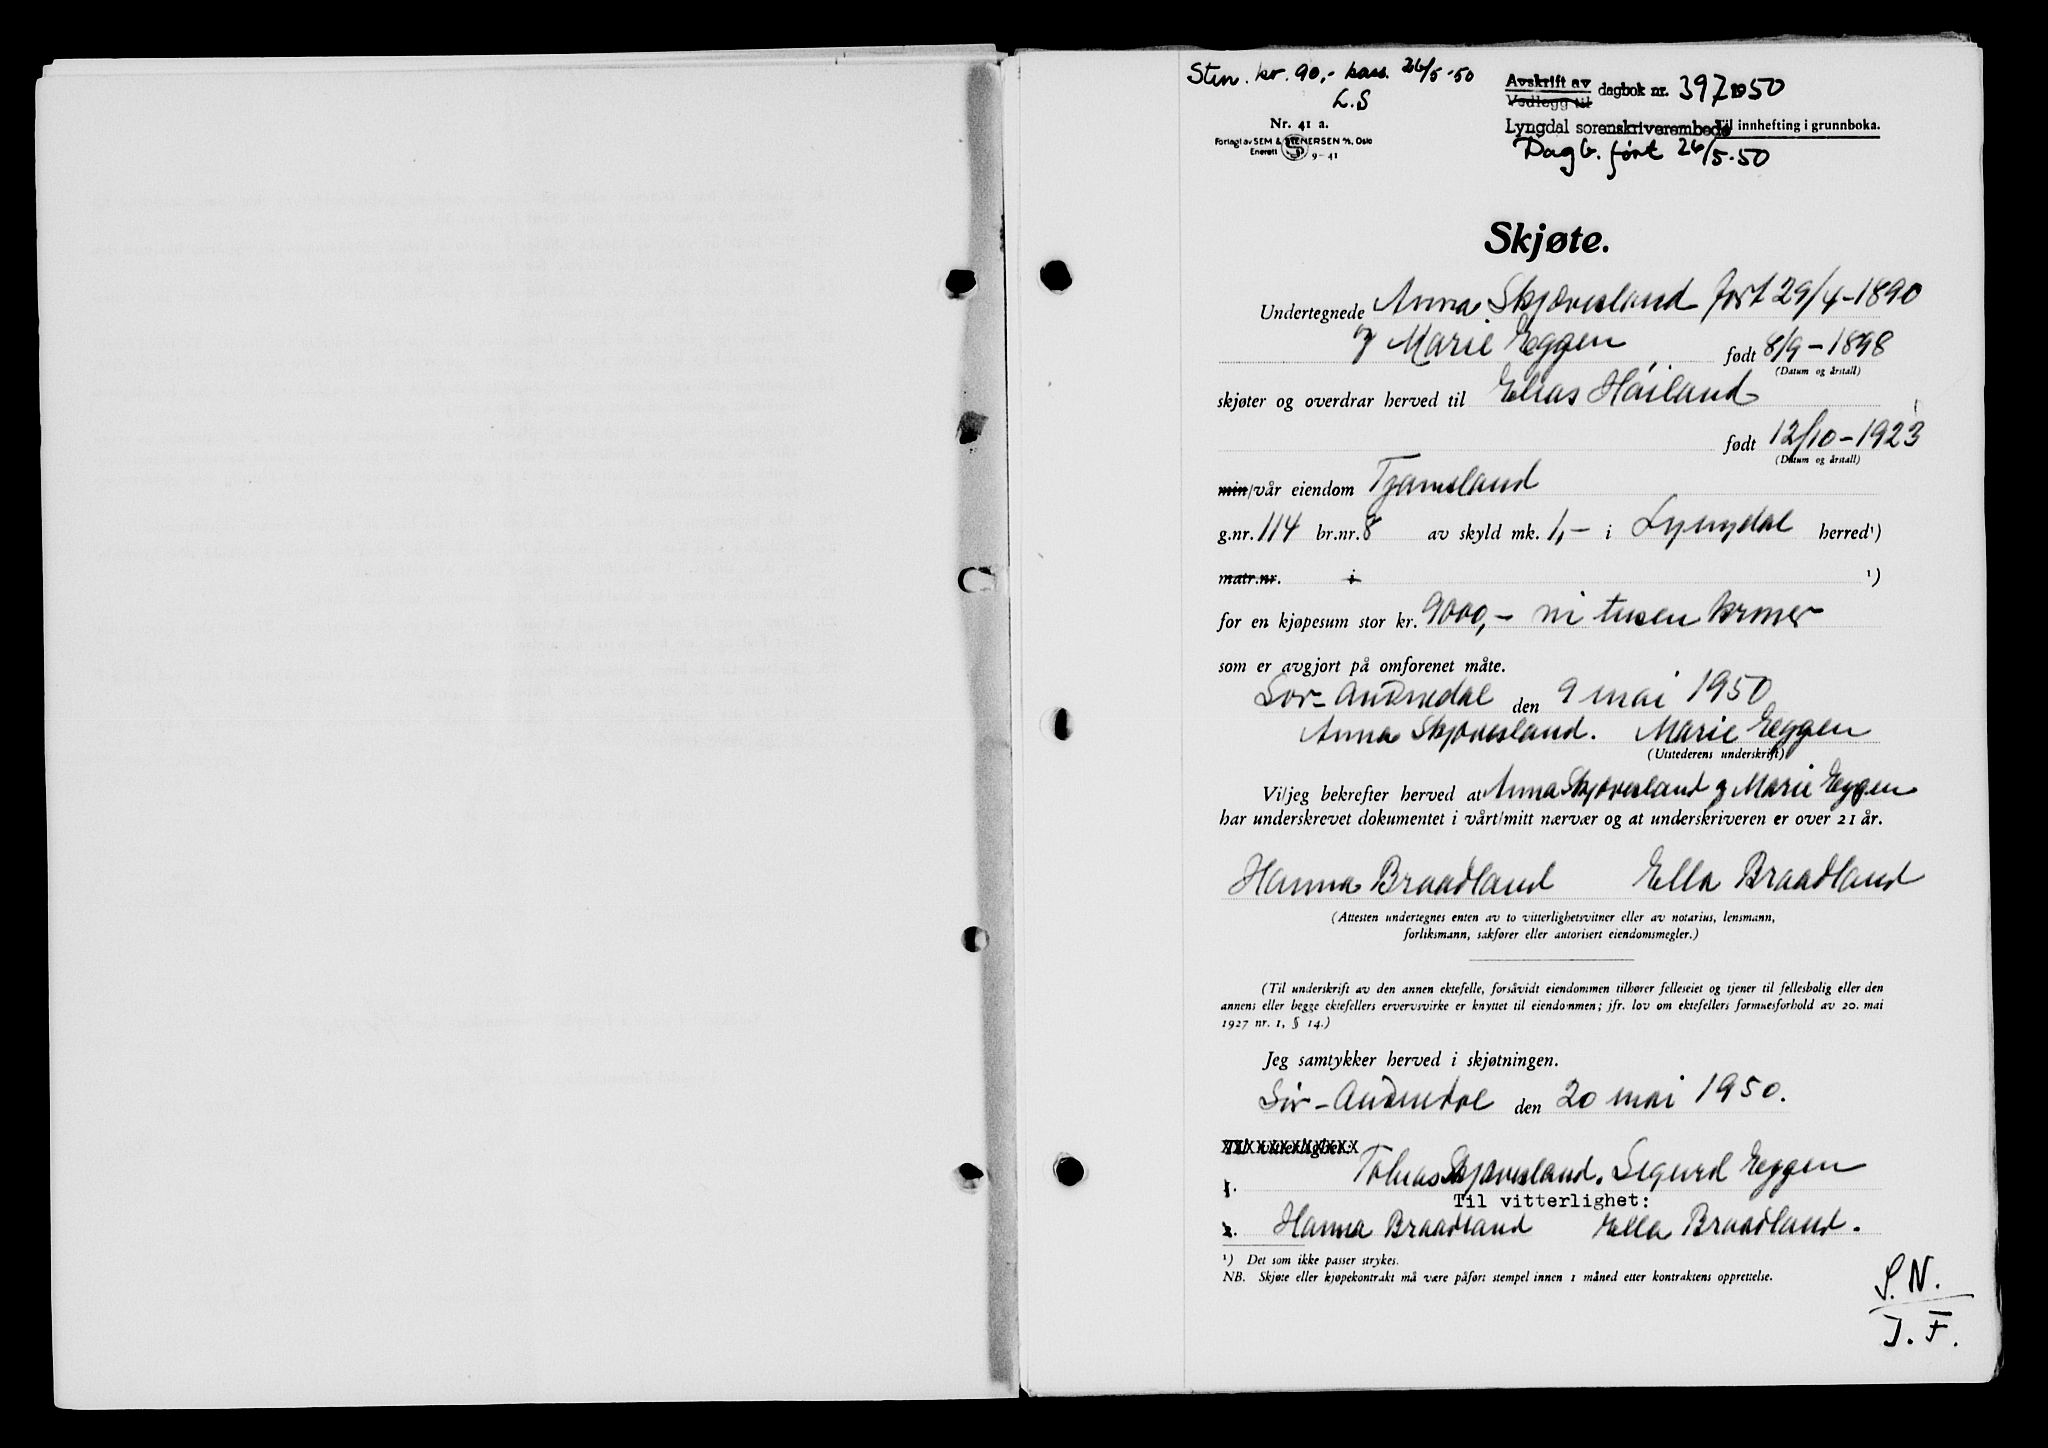 Stm. kr. 90,- kass. 26/5-50
L.S
Nr. 41 a.
Forlagt av SEM & STENERSEN A/S, Oslo
Enerett S 9-41
Avskrift av
Vedlegg til
dagbok nr. 397 1950
Lyngdal sorenskriverembede Til innhefting i grunnboka.
Dagb. ført 26/5-50
Skjøte.
Undertegnede Anna Skjævesland født 29/4-1890
og Marie Eggen født 8/9-1898
(Datum og årstall)
skjøter og overdrar herved til Elias Høiland
født 12/10-1923
(Datum og årstall)
min/vår eiendom Tjamsland
g.nr. 114 br.nr. 8 av skyld mk. 1,- i Lyngdal herred¹)
matr.nr. i ¹)
for en kjøpesum stor kr. 9000,- ni tusen kroner
som er avgjort på omforenet måte.
Sør-Audnedal den 9 mai 1950
Anna Skjævesland. Marie Eggen
(Utstederens underskrift)
Vi/jeg bekrefter herved at Anna Skjævesland og Marie Eggen
har underskrevet dokumentet i vårt/mitt nærvær og at underskriveren er over 21 år.
Hanna Braadland Ella Braadland
(Attesten undertegnes enten av to vitterlighetsvitner eller av notarius, lensmann,
forliksmann, sakfører eller autorisert eiendomsmegler.)
(Til underskrift av den annen ektefelle, forsåvidt eiendommen tilhører felleseiet og tjener til fellesbolig eller den
annens eller begge ektefellers ervervsvirke er knyttet til eiendommen; jfr. lov om ektefellers formuesforhold av 20. mai
1927 nr. 1, § 14.)
Jeg samtykker herved i skjøtningen.
Sør-Audnedal den 20 mai 1950.
Til vitterlighet:
1. Tobias Skjævesland. Sigurd Eggen
Til vitterlighet:
2. Hanna Braadland Ella Braadland.
¹) Det som ikke passer strykes.
NB. Skjøte eller kjøpekontrakt må være påført stempel innen 1 måned etter kontraktens opprettelse.
S.N.
J.F.